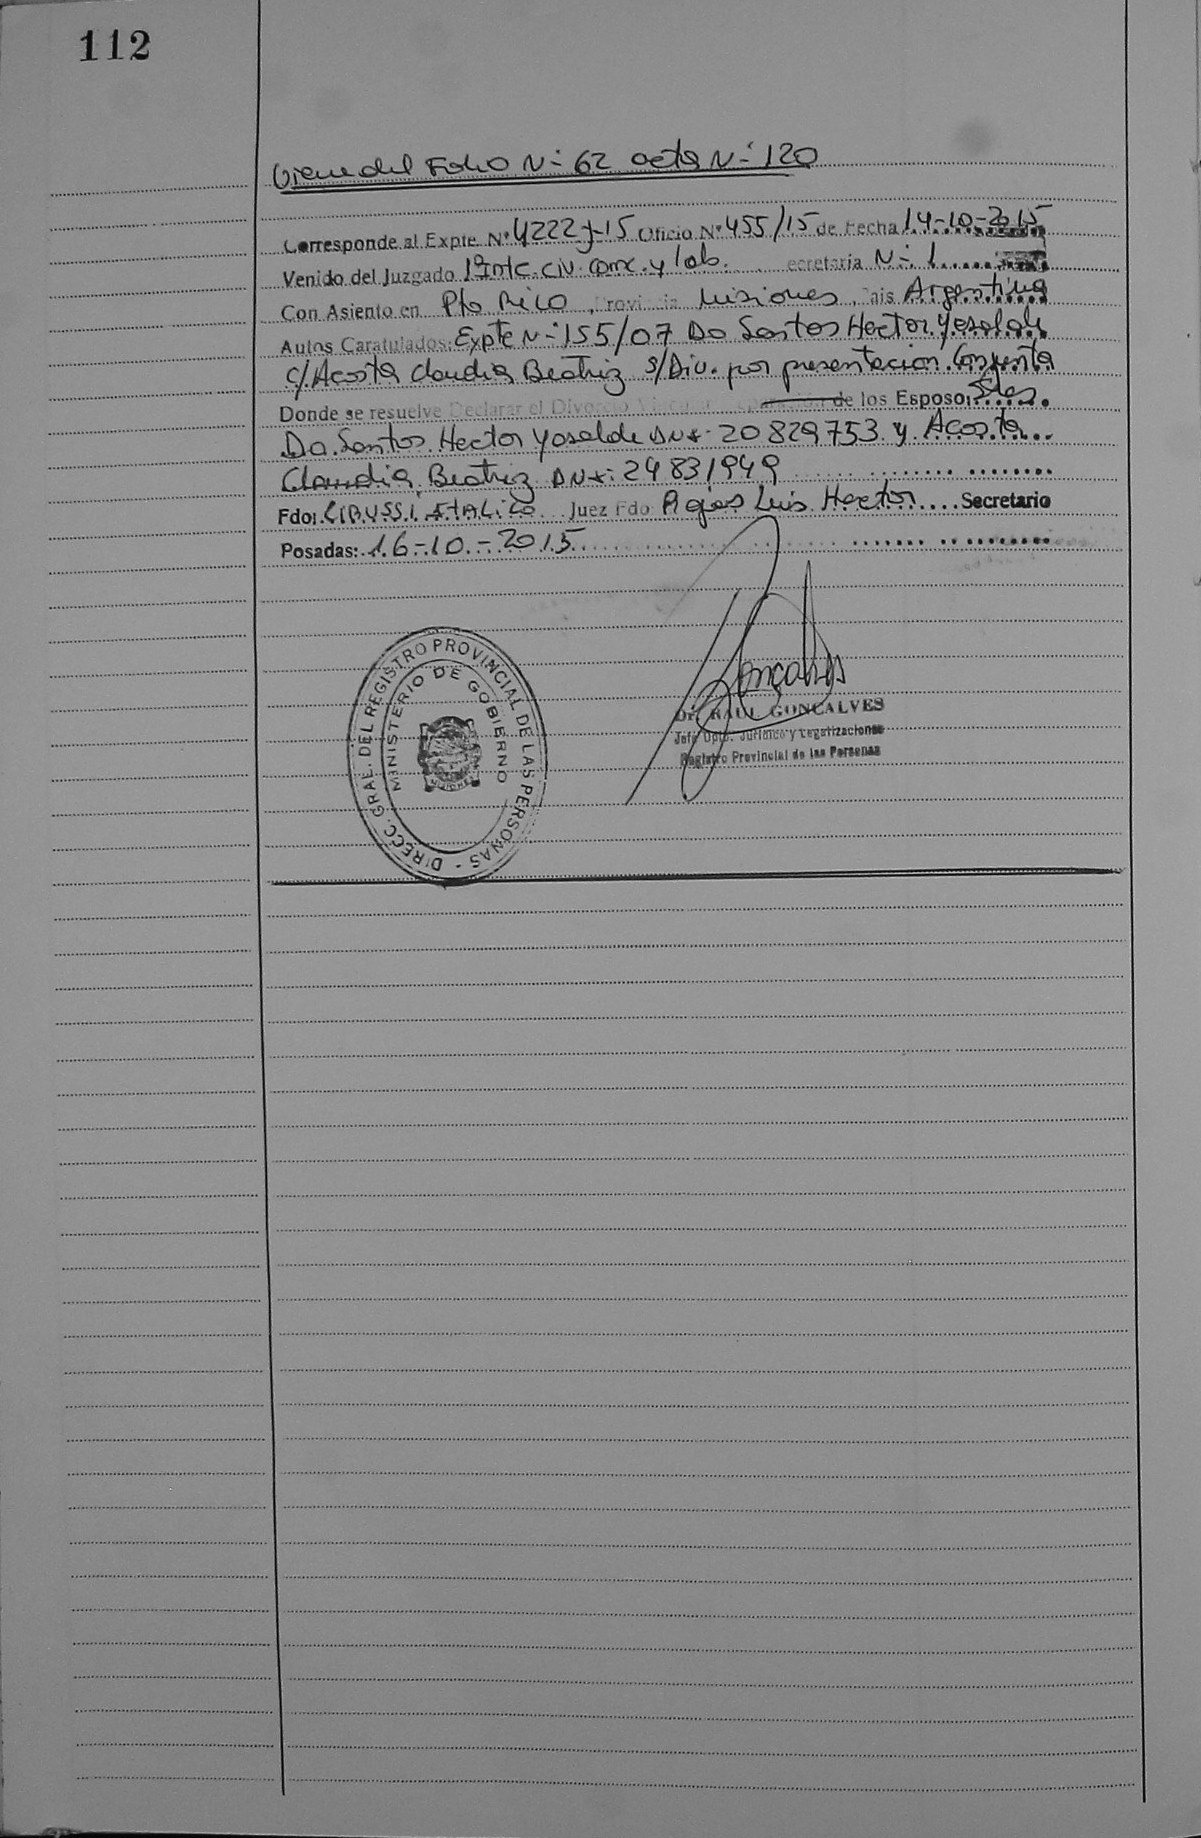 112
Viene del Folio N- 62 acta N- 120
Corresponde al Expte Nº 4222-J-15 Oficio Nº 455/15 de Fecha 14-10-2015
Venido del Juzgado 1º Inte. Civ. Com. y lab. ecretaría N- 1
Con Asiento en Pto Rico, Provincia Misiones, País Argentina
Autos Caratulados: Expte N- 155/07 Do Santos Hector Yosalde
c/Acosta Claudia Beatriz s/Div. por presentacion Conjunta
Donde se resuelve Declarar el Divorcio Vincular de los Esposos Sres
Do Santos Hector Yosalde DNI- 20829753 y Acosta
Claudia Beatriz DNI: 24831949
Fdo: Juez Fdo Rojas Luis Hector Secretario
Posadas: 16-10-2015
DIRECC. GRAL. DEL REGISTRO PROVINCIAL DE LAS PERSONAS -
MINISTERIO DE GOBIERNO
Dr. RAUL GONCALVES
Jefe Dpto. Jurídico y Legalizaciones
Registro Provincial de las Personas